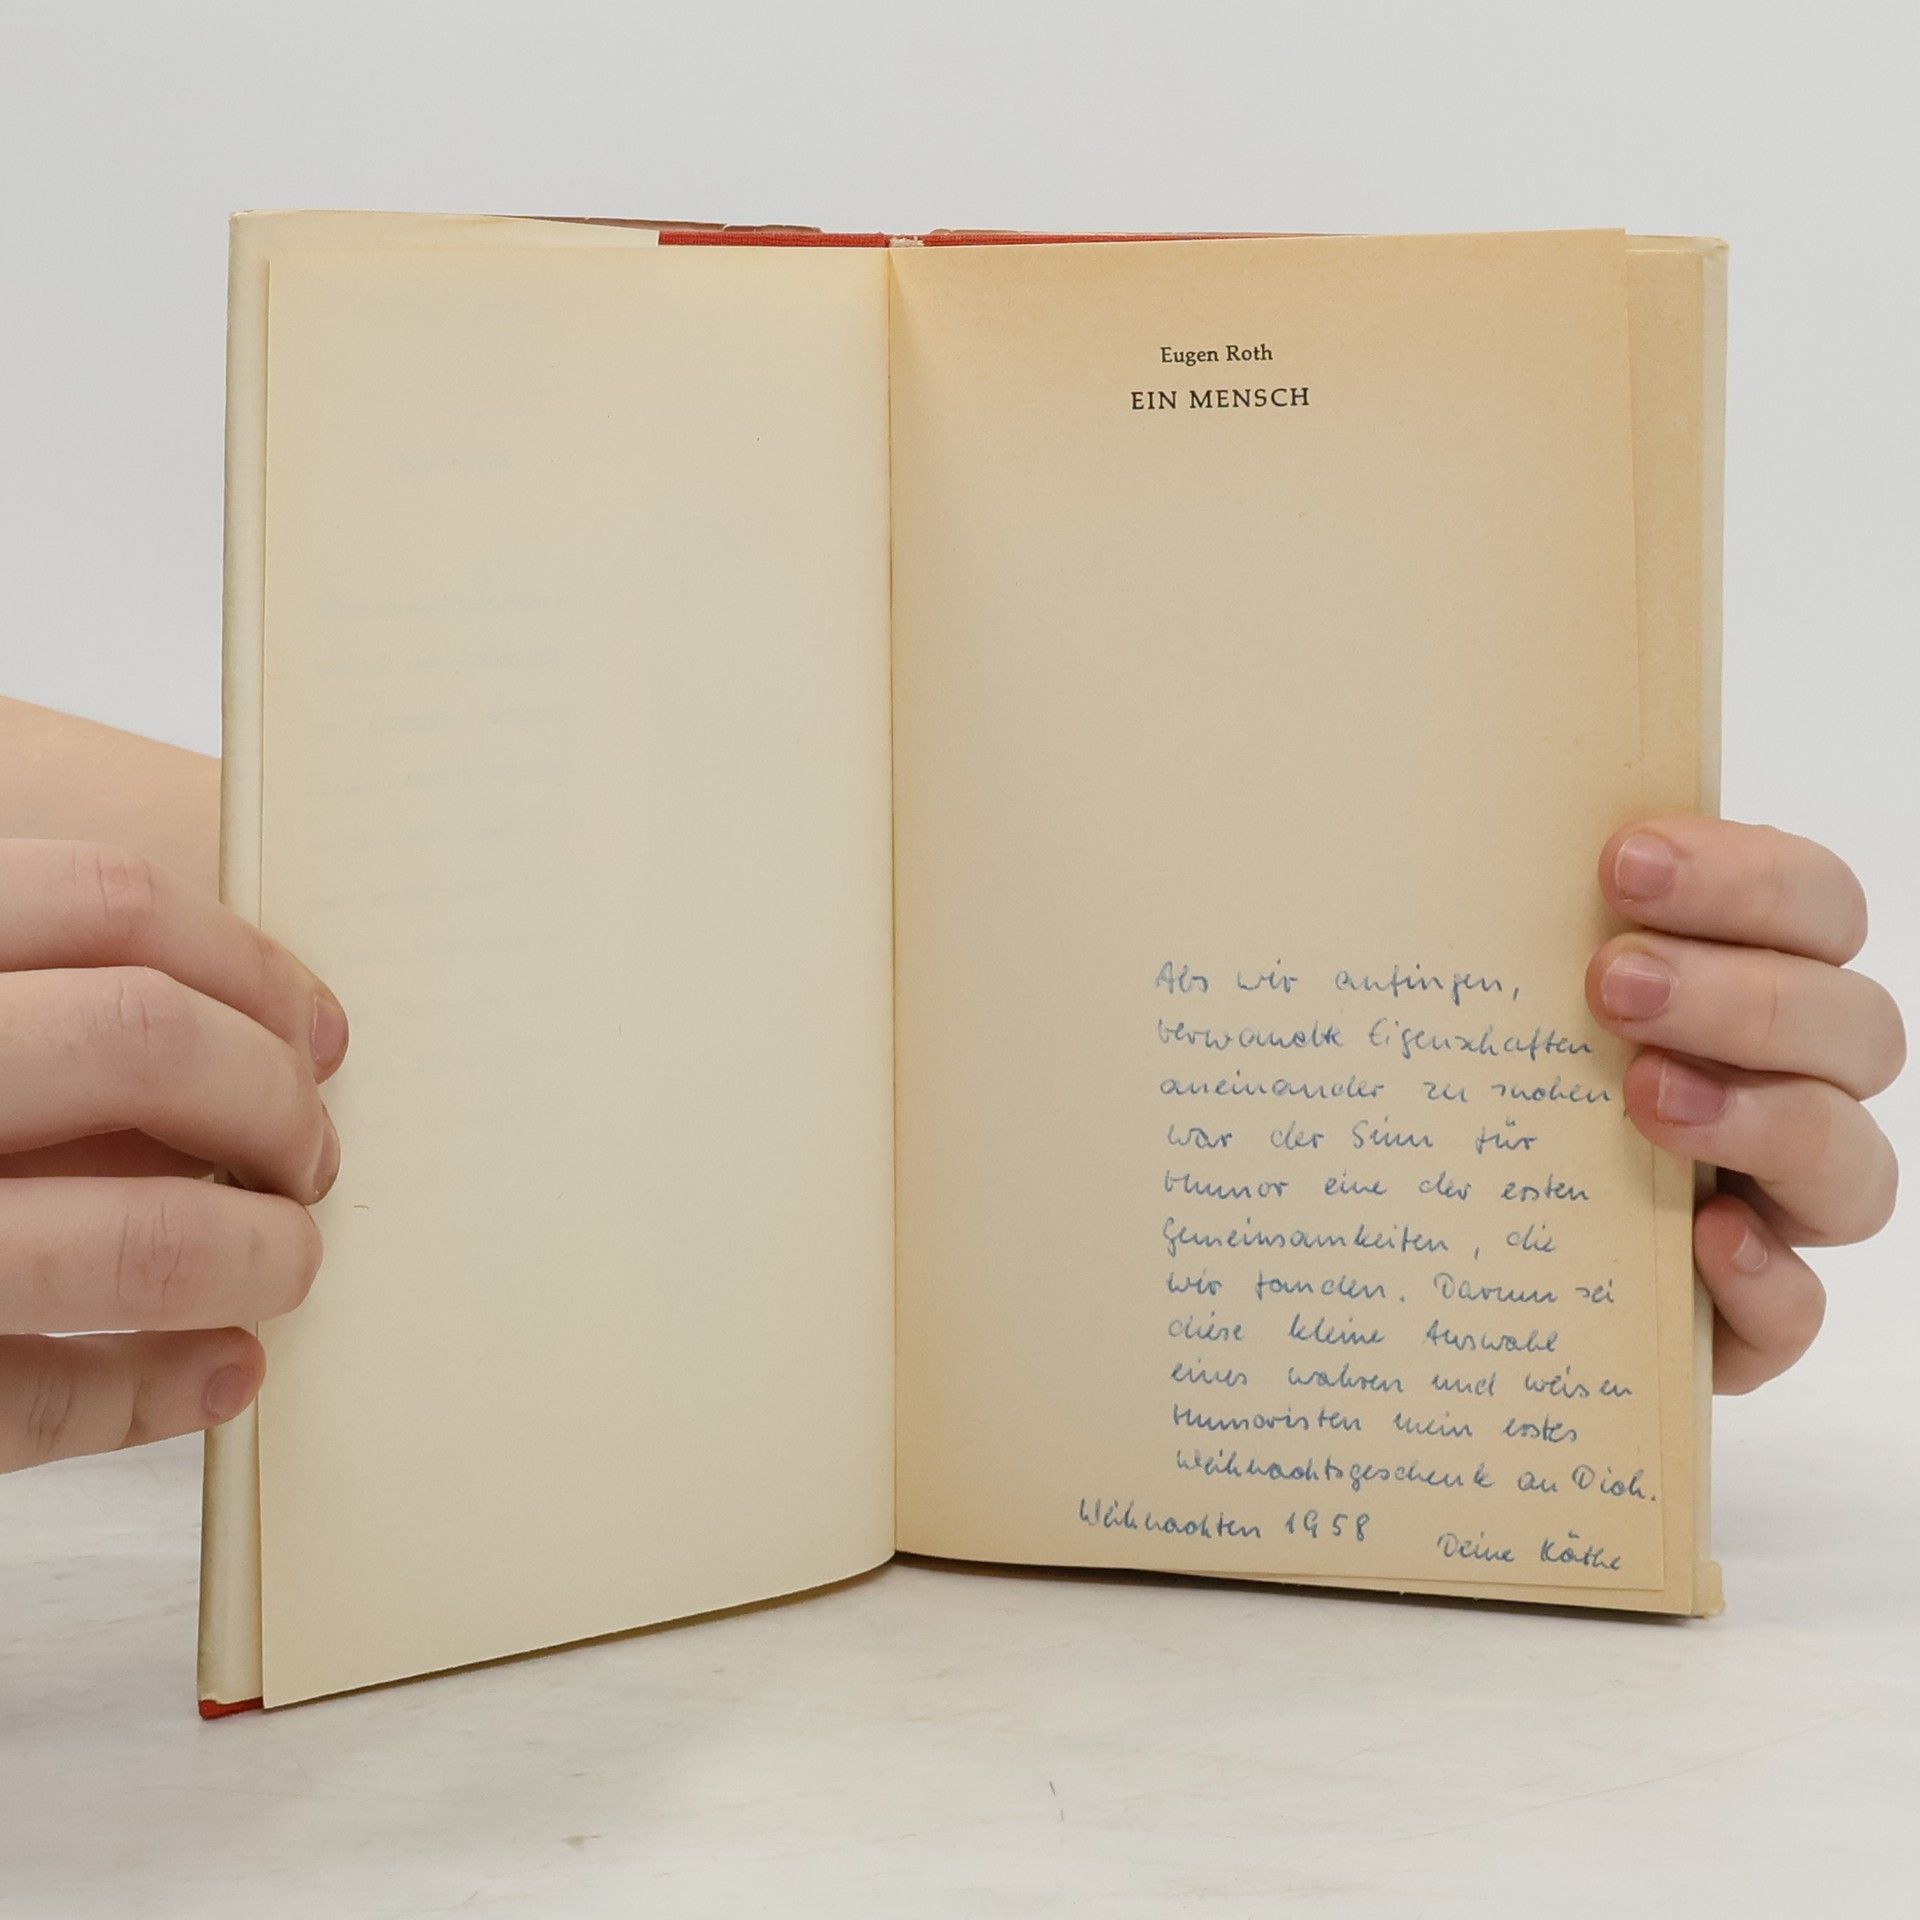 Eugen Roth
EIN MENSCH
Als wir anfingen,
verwandte Eigenschaften
aneinander zu suchen,
war der Sinn für
Humor eine der ersten
Gemeinsamkeiten, die
wir fanden. Darum sei
diese kleine Auswahl
eines wahren und weisen
Humoristen mein erstes
Weihnachtsgeschenk an Dich.
Weihnachten 1958
Deine Käthe